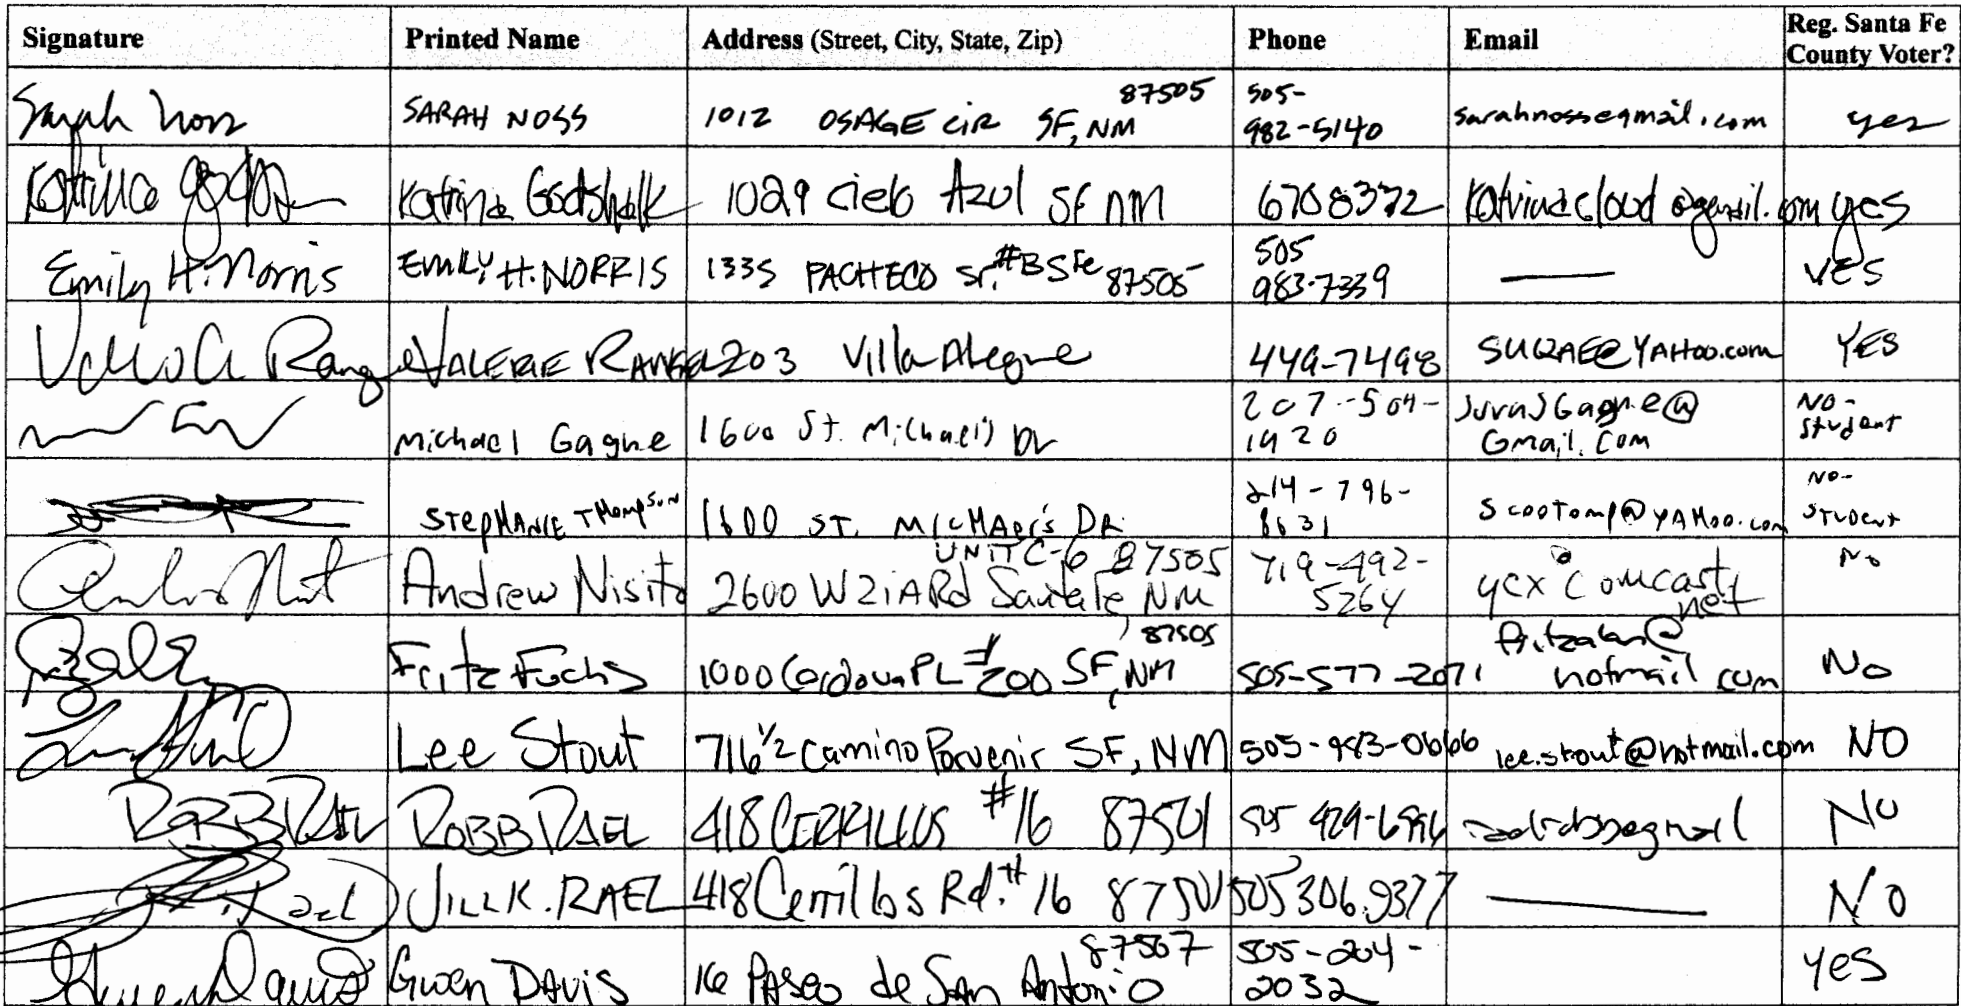 Signature Printed Name Address (Street, City, State, Zip) Phone Email Reg. Santa Fe County Voter?
Sarah Noss SARAH NOSS 1012 OSAGE CIR SF, NM 87505 505-982-5140 sarahnoss@gmail.com yes
Katrina Katrina Godshalk 1029 Cielo Azul SF NM 6708372 Katrinacloud@gmail.com yes
Emily H. Norris EMILY H. NORRIS 1335 PACHECO St. #B SFe 87505 505 983-7339 — YES
Range VALERIE RANGEL 203 Villa Alegre 449-7498 SUQAE@YAHOO.com YES
Michael Gagne 1600 St. Michael's Dr 207-504-1920 JuvaJGagne@Gmail.com NO-Student
STEPHANIE THOMPSON 1600 ST. MICHAEL'S DR 214-796-8631 scootomp@YAHOO.com NO-STUDENT
Andrew Nisito 2600 W ZIA Rd UNIT C-6 Santa Fe NM 87505 719-492-5264 ycx@comcast.net No
Fritz Fuchs 1000 Cordova PL #200 SF, NM 87505 505-577-2071 fritzalan@hotmail.com No
Lee Stout 716 1/2 Camino Porvenir SF, NM 505-983-0666 lee.stout@hotmail.com NO
ROBB RAEL ROBB RAEL 418 CERRILLOS #16 87501 505 929-6996 No
Rael JILL K. RAEL 418 Cerrillos Rd. #16 87501 505 306.9377 — NO
Gwen Davis Gwen DAVIS 16 PASeo de San Antonio 87507 505-204-2032 yes